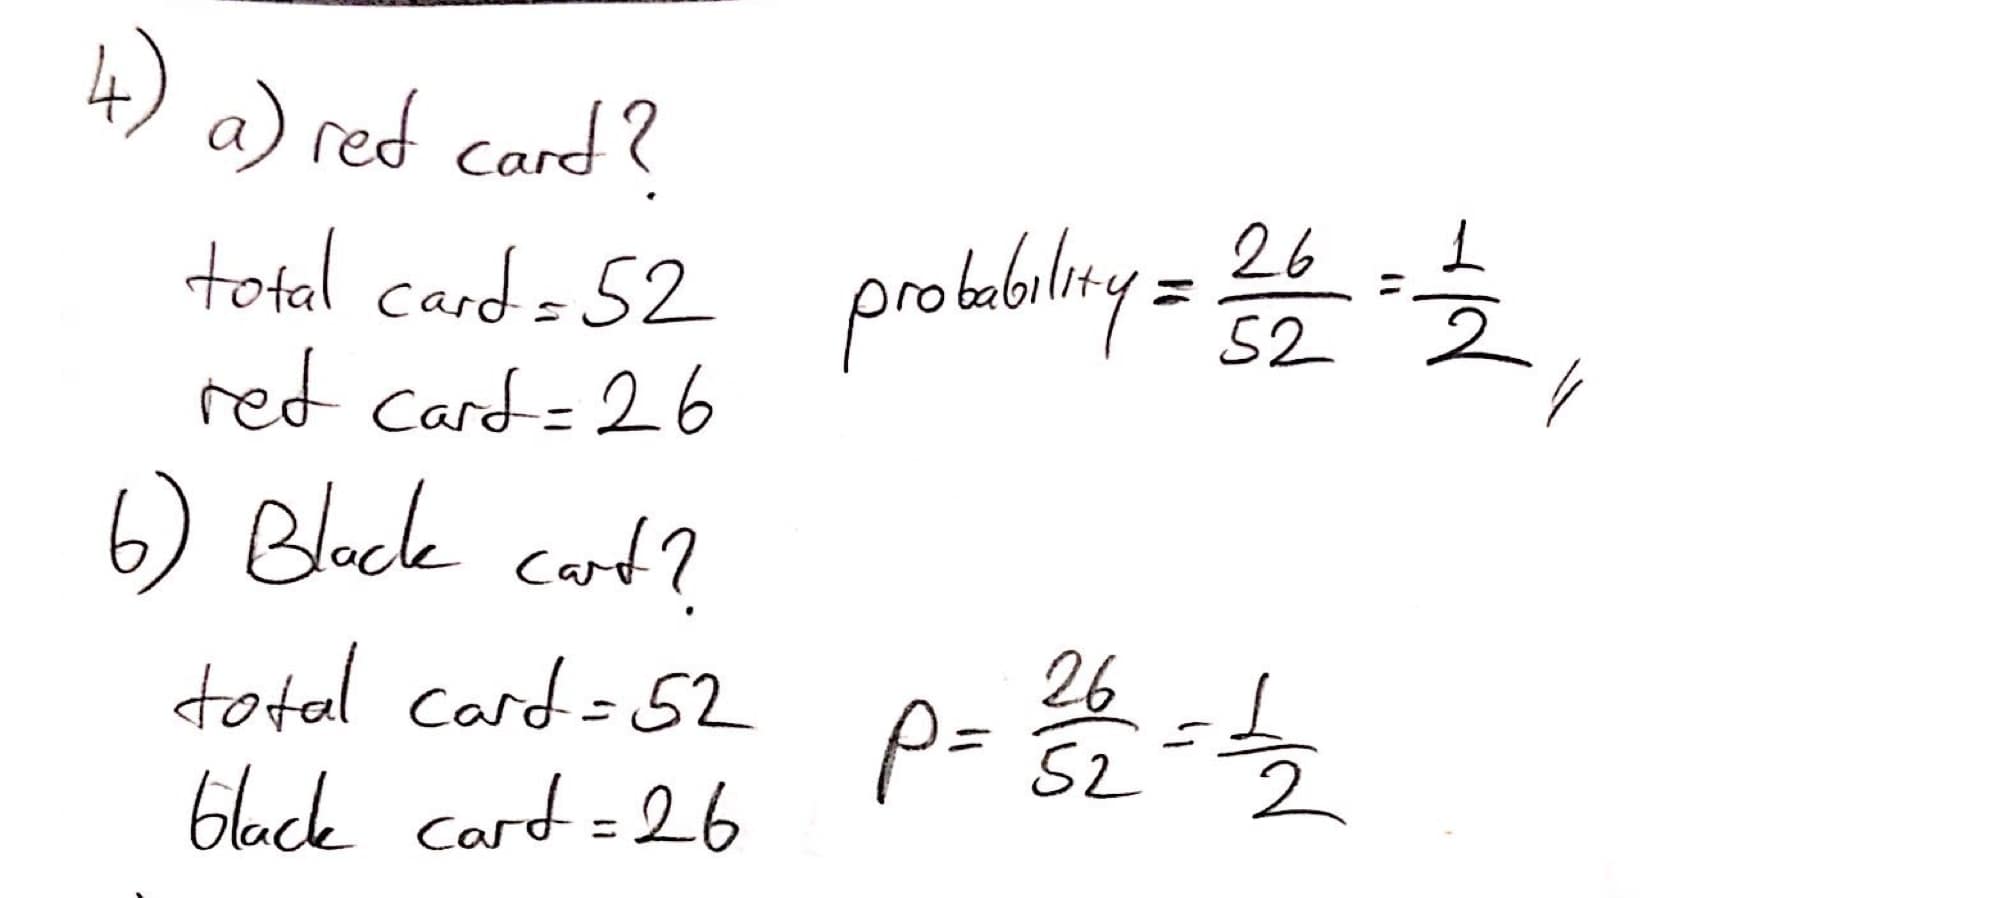 4) a) red card?
total card = 52 probability = 26/52 = 1/2
red card = 26
b) Black card?
total card = 52 P = 26/52 = 1/2
black card = 26